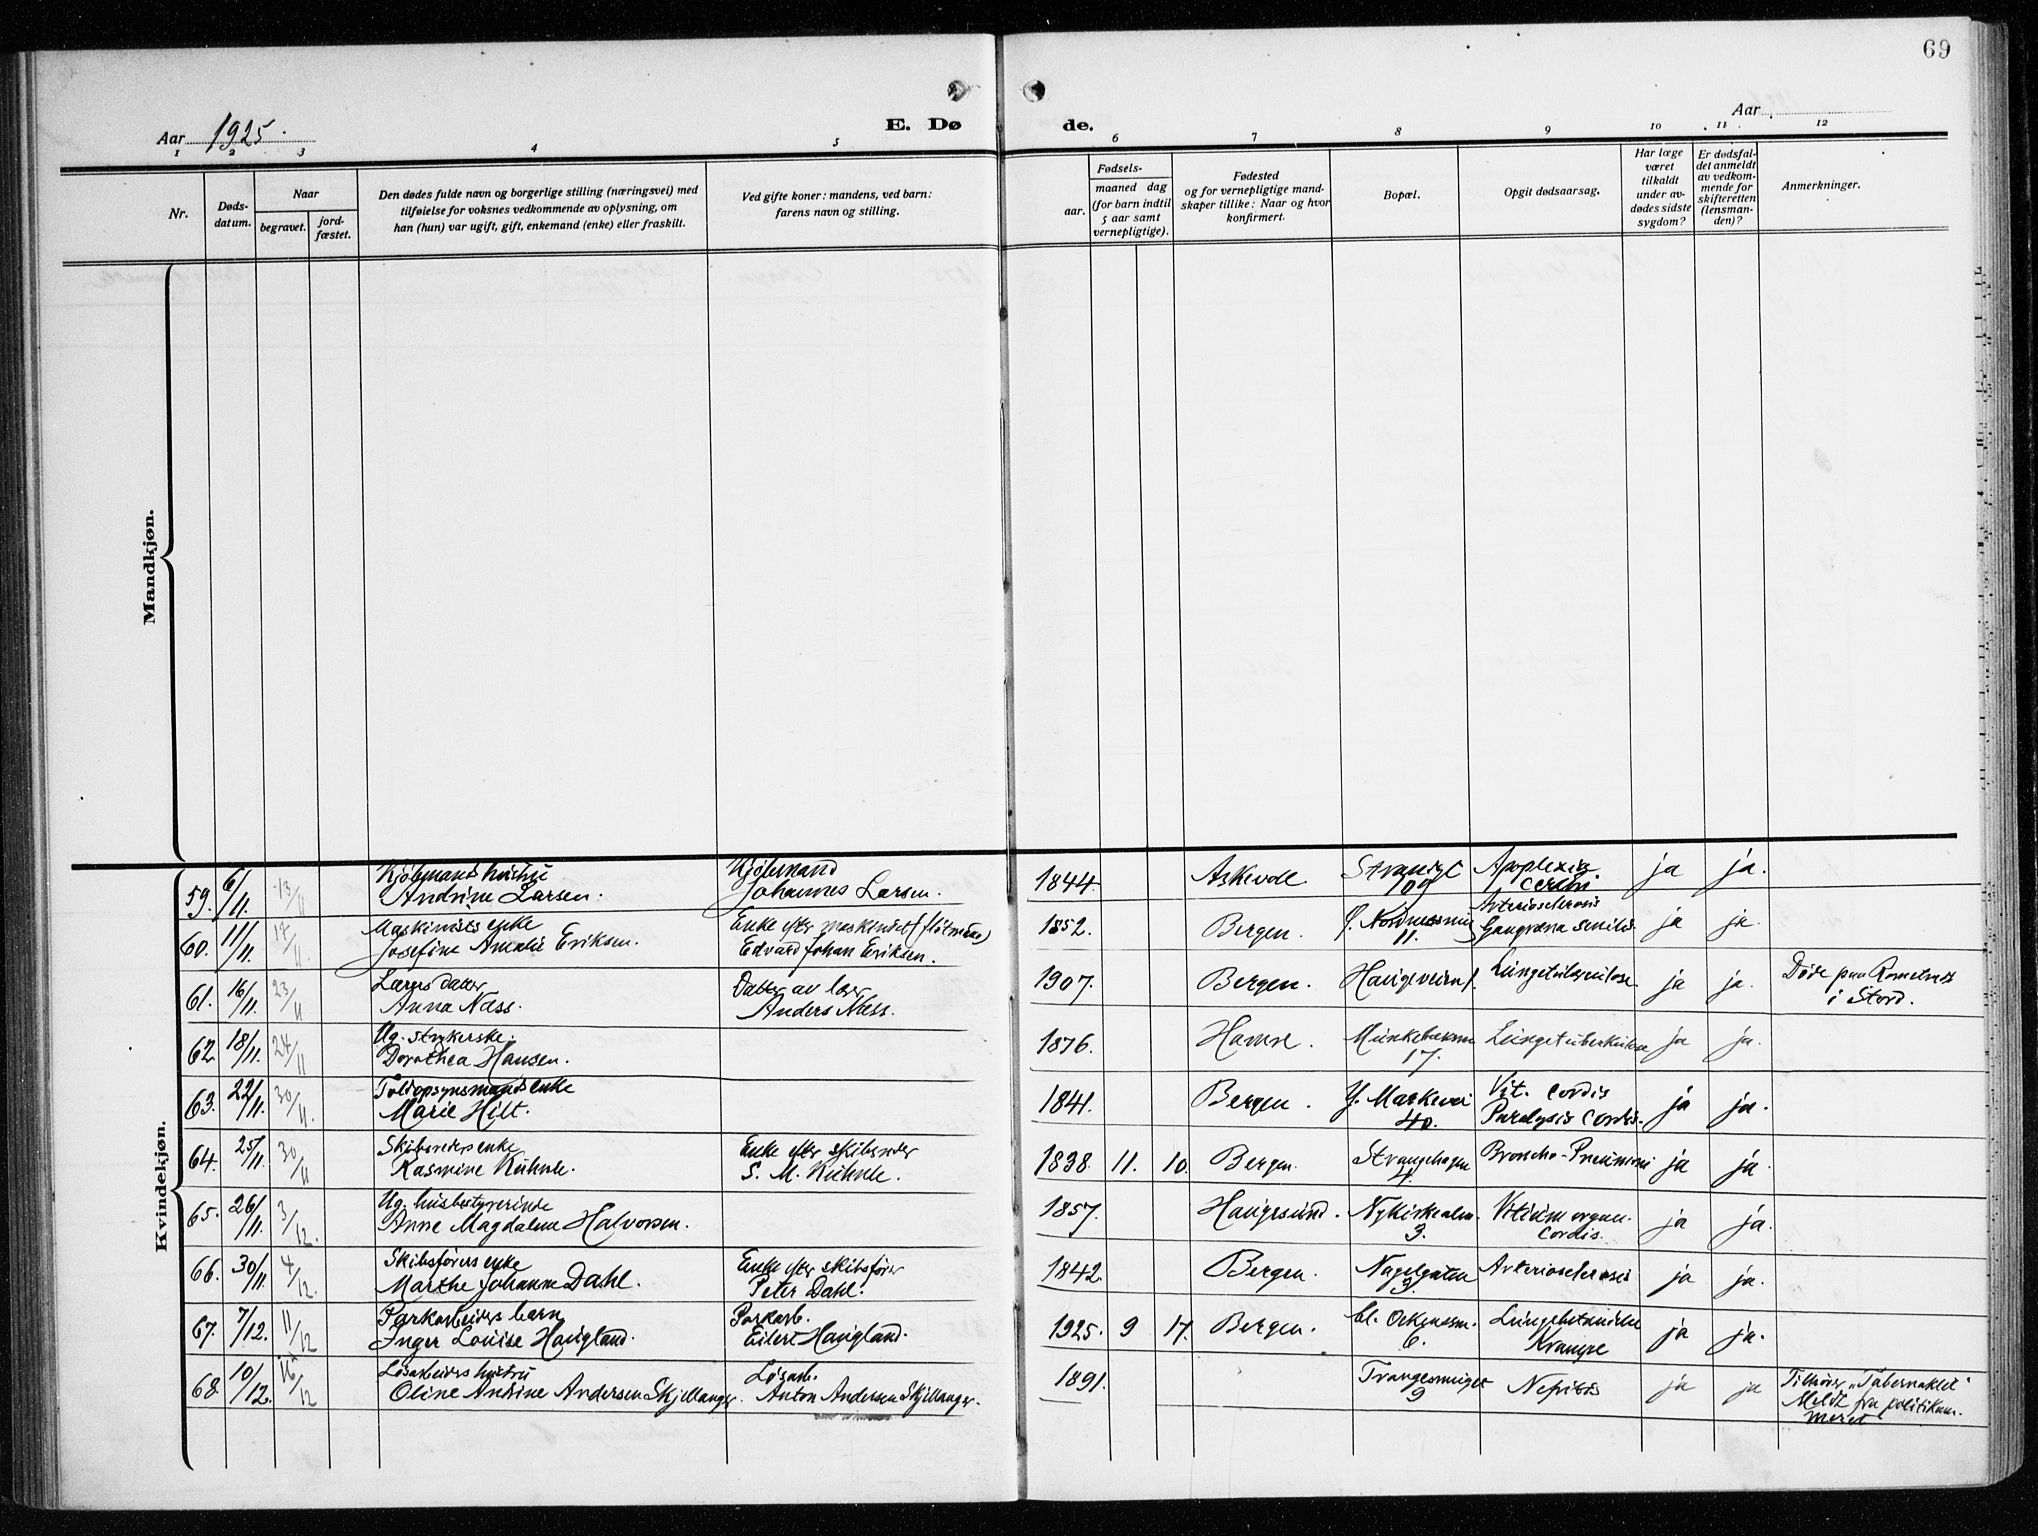 69
Aar 1925.
E. Dø de.
Aar
1 2 3 4 5 6 7 8 9 10 11 12
Nr.
Døds-
datum.
Naar
begravet.
jord-
fæstet.
Den dødes fulde navn og borgerlige stilling (næringsvei) med
tilføielse for voksnes vedkommende av oplysning, om
han (hun) var ugift, gift, enkemand (enke) eller fraskilt.
Ved gifte koner: mandens, ved barn:
farens navn og stilling.
Fødsels-
aar.
maaned dag
(for barn indtil
5 aar samt
vernepligtige).
Fødested
og for vernepligtige mand-
skaper tillike: Naar og hvor
konfirmert.
Bopæl.
Opgit dødsaarsag.
Har læge
været
tilkaldt
under av-
dødes sidste
sygdom?
Er dødsfal-
det anmeldt
av vedkom-
mende for
skifteretten
(lensman-
den)?
Anmerkninger.
Mandkjøn.
Kvindekjøn.
59. 6/11. 13/11 Kjøbmands hustru
Andrine Larsen.
Kjøbmand
Johannes Larsen.
1844. Askevold Strandgt
109
Apoplexia
cerebri.
ja ja.
60. 11/11. 17/11. Maskinists enke
Josefine Amalie Eriksen.
Enke efter maskinist
Edvard Johan Eriksen.
1852. Bergen.
11.
Arteriosclerosis
Gangræna senilis.
ja ja.
61. 16/11. 23/11 Lærers datter
Anna Næss.
Datter av lærer
Anders Næss.
1907. Bergen. Haugeveien 1. Lungetuberkulose ja ja. Døde paa
i Stord.
62. 18/11. 24/11 Ug. strykerske.
Dorothea Hansen.
1876. Hamre.
17.
Lungetuberkulose ja ja.
63. 22/11. 30/11. Toldopsynsmands enke
Marie Hilt.
1841. Bergen. Y. Markevei
40.
Vit. cordis
Paralysis cordis.
ja ja.
64. 25/11. 30/11 Skibsreders enke
Rasmine Kuhnle.
Enke efter skibsreder
S. M. Kuhnle.
1838. 11. 10. Bergen. Strangehagen
4.
Broncho-Pneumoni ja ja.
65. 26/11. 3/12. Ug. husbestyrerinde
Anne Magdalene Halvorsen.
1857. Haugesund. Nykirkealm.
3.
Vitium organ.
cordis.
ja ja.
66. 30/11 4/12. Skibsførers enke
Marthe Johanne Dahl.
Enke efter skibsfører
Peter Dahl.
1842. Bergen. Nagelgaten
3.
Arteriosclerosis ja ja.
67. 7/12. 11/12 Parkarbeiders barn
Inger Louise Haugland.
Parkarb.
Eilert Haugland.
1925. 9 17. Bergen.
6.
Lungebetændelse
Krampe
ja ja.
68. 10/12. 16/12 Løsarbeiders hustru
Oline Andrine Andersen Skjellanger.
Løsarb.
Anton Andersen Skjellanger.
1891. Trangesmuget
9
Nefritis ja ja Tilhører "Tabernaklet"
Meldt fra politikam-
meret